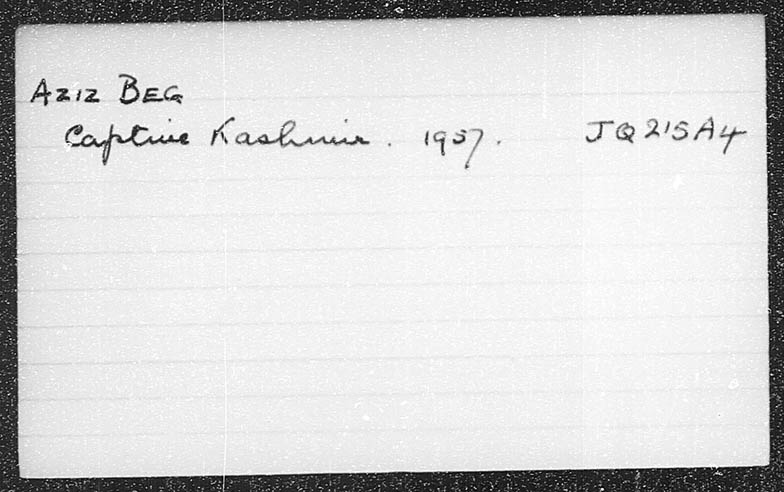 AZIZ BEG
Captive Kashmir. 1957. JQ215A4